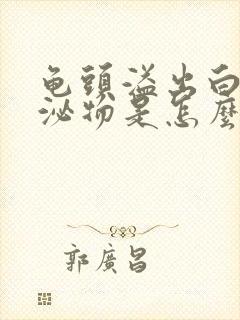 龟頭溢出白
泌物是怎麼
郭廣昌